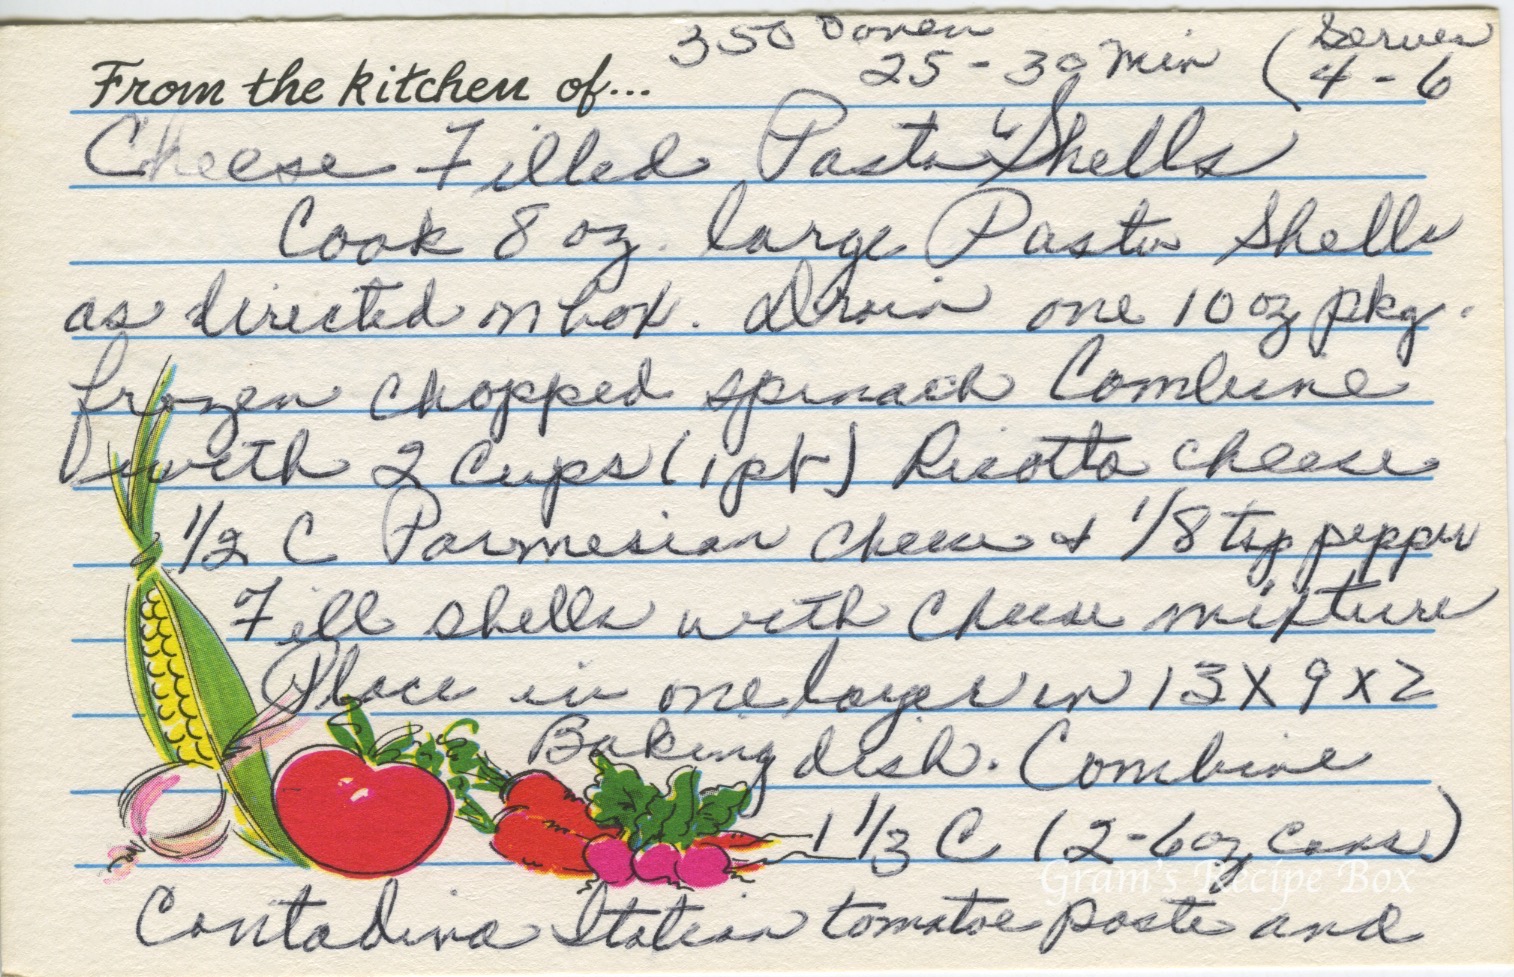 350° oven
25 - 30 Min (Serves
4 - 6
From the kitchen of...
Cheese Filled Pasta Shells
Cook 8 oz. large Pasta Shells
as directed on box. Drain one 10 oz pkg.
frozen chopped spinach Combine
with 2 Cups (1 pt) Ricotta cheese
1/2 C Parmesian cheese & 1/8 tsp pepper
Fill shells with cheese mixture
Place in one layer in 13 X 9 X 2
Baking dish. Combine
1 1/3 C (2-6 oz cans)
Gram's Recipe Box
Contadina Italian tomatoe paste and